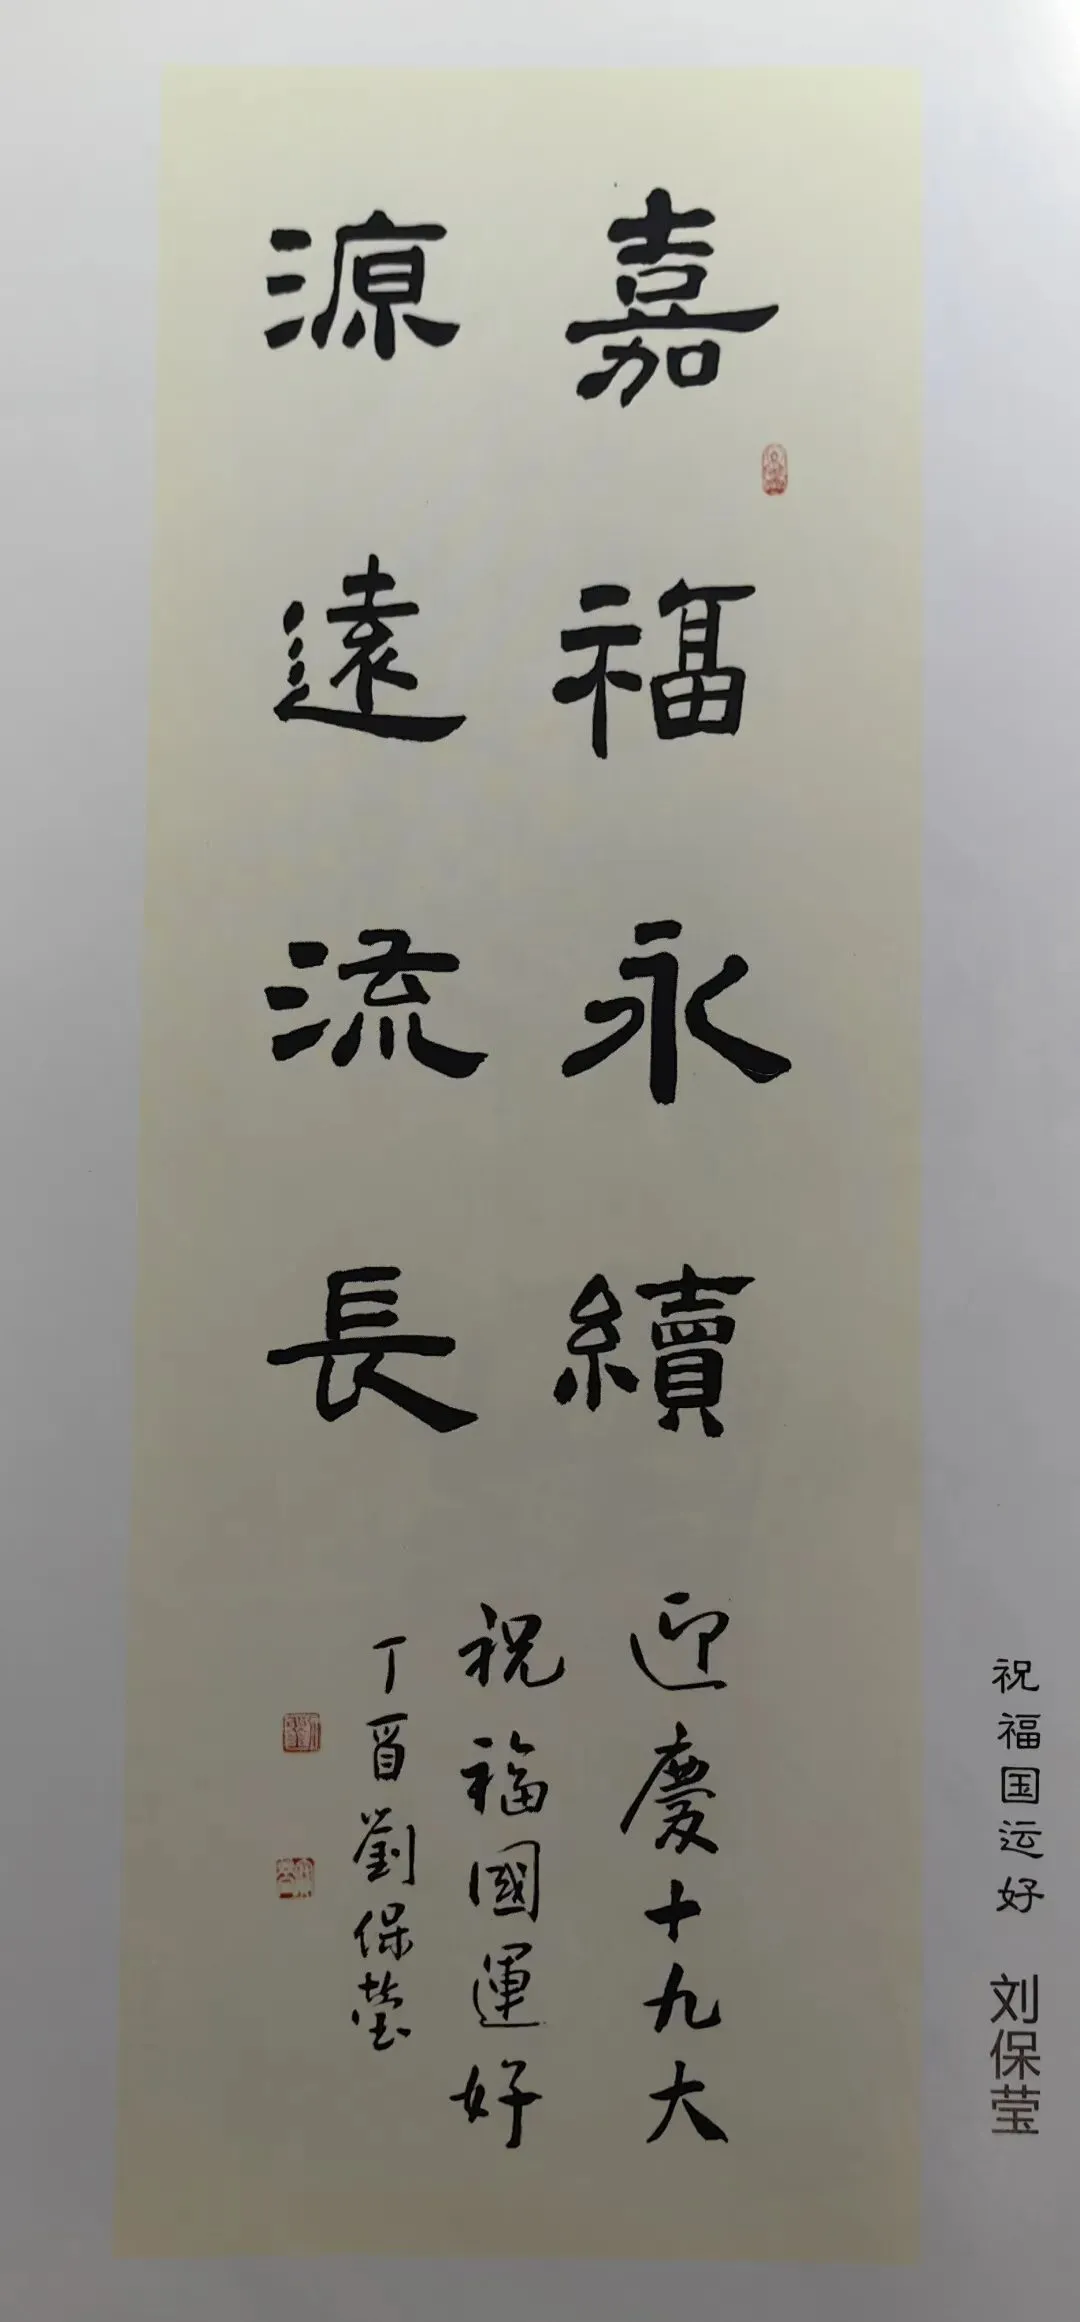 嘉福永續
源遠流長
迎慶十九大
祝福國運好
丁酉劉保瑩
祝福国运好 刘保莹